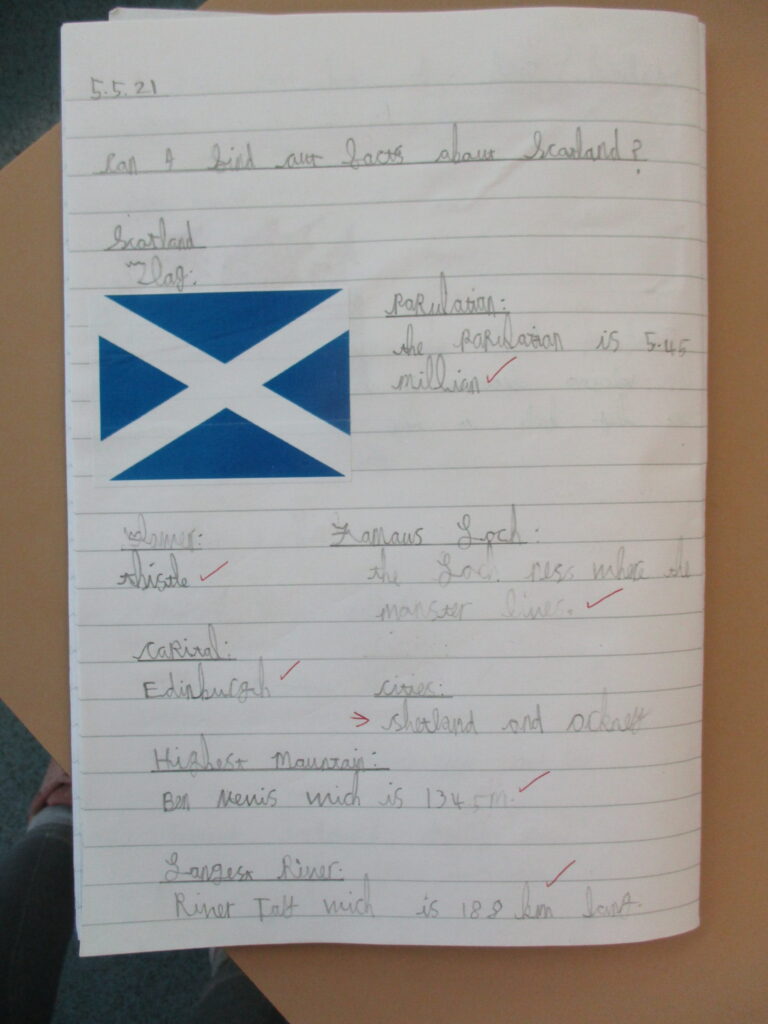 5.5.21
Can I find out facts about Scotland?
Scotland
Flag:
Population:
the Population is 5.45
million
flower:
thistle
Famous Loch:
the Loch ness where the
monster lives.
Capital:
Edinburgh
Cities:
shetland and orkney
Highest Mountain:
Ben Nevis wich is 1345m.
Longest River:
River Tay wich is 188 km long.